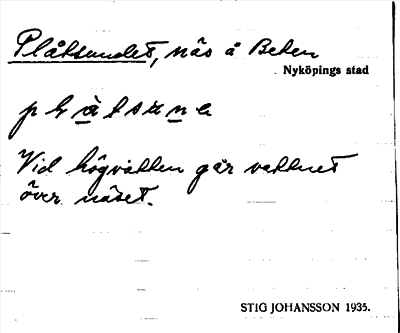 Plåtsundet, näs å Beten
Nyköpings stad
Vid högvatten går vattnet
över näset.
STIG JOHANSSON 1935.